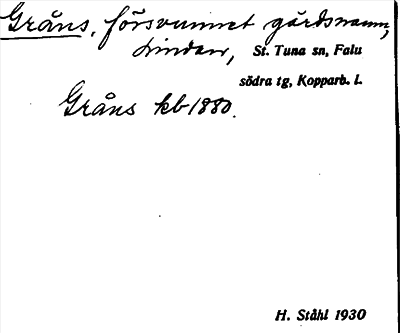 Gråns, försvunnet gårdsnamn,
Lindan, St. Tuna sn, Falu
södra tg, Kopparb. l.
Gråns kb 1880.
H. Ståhl 1930